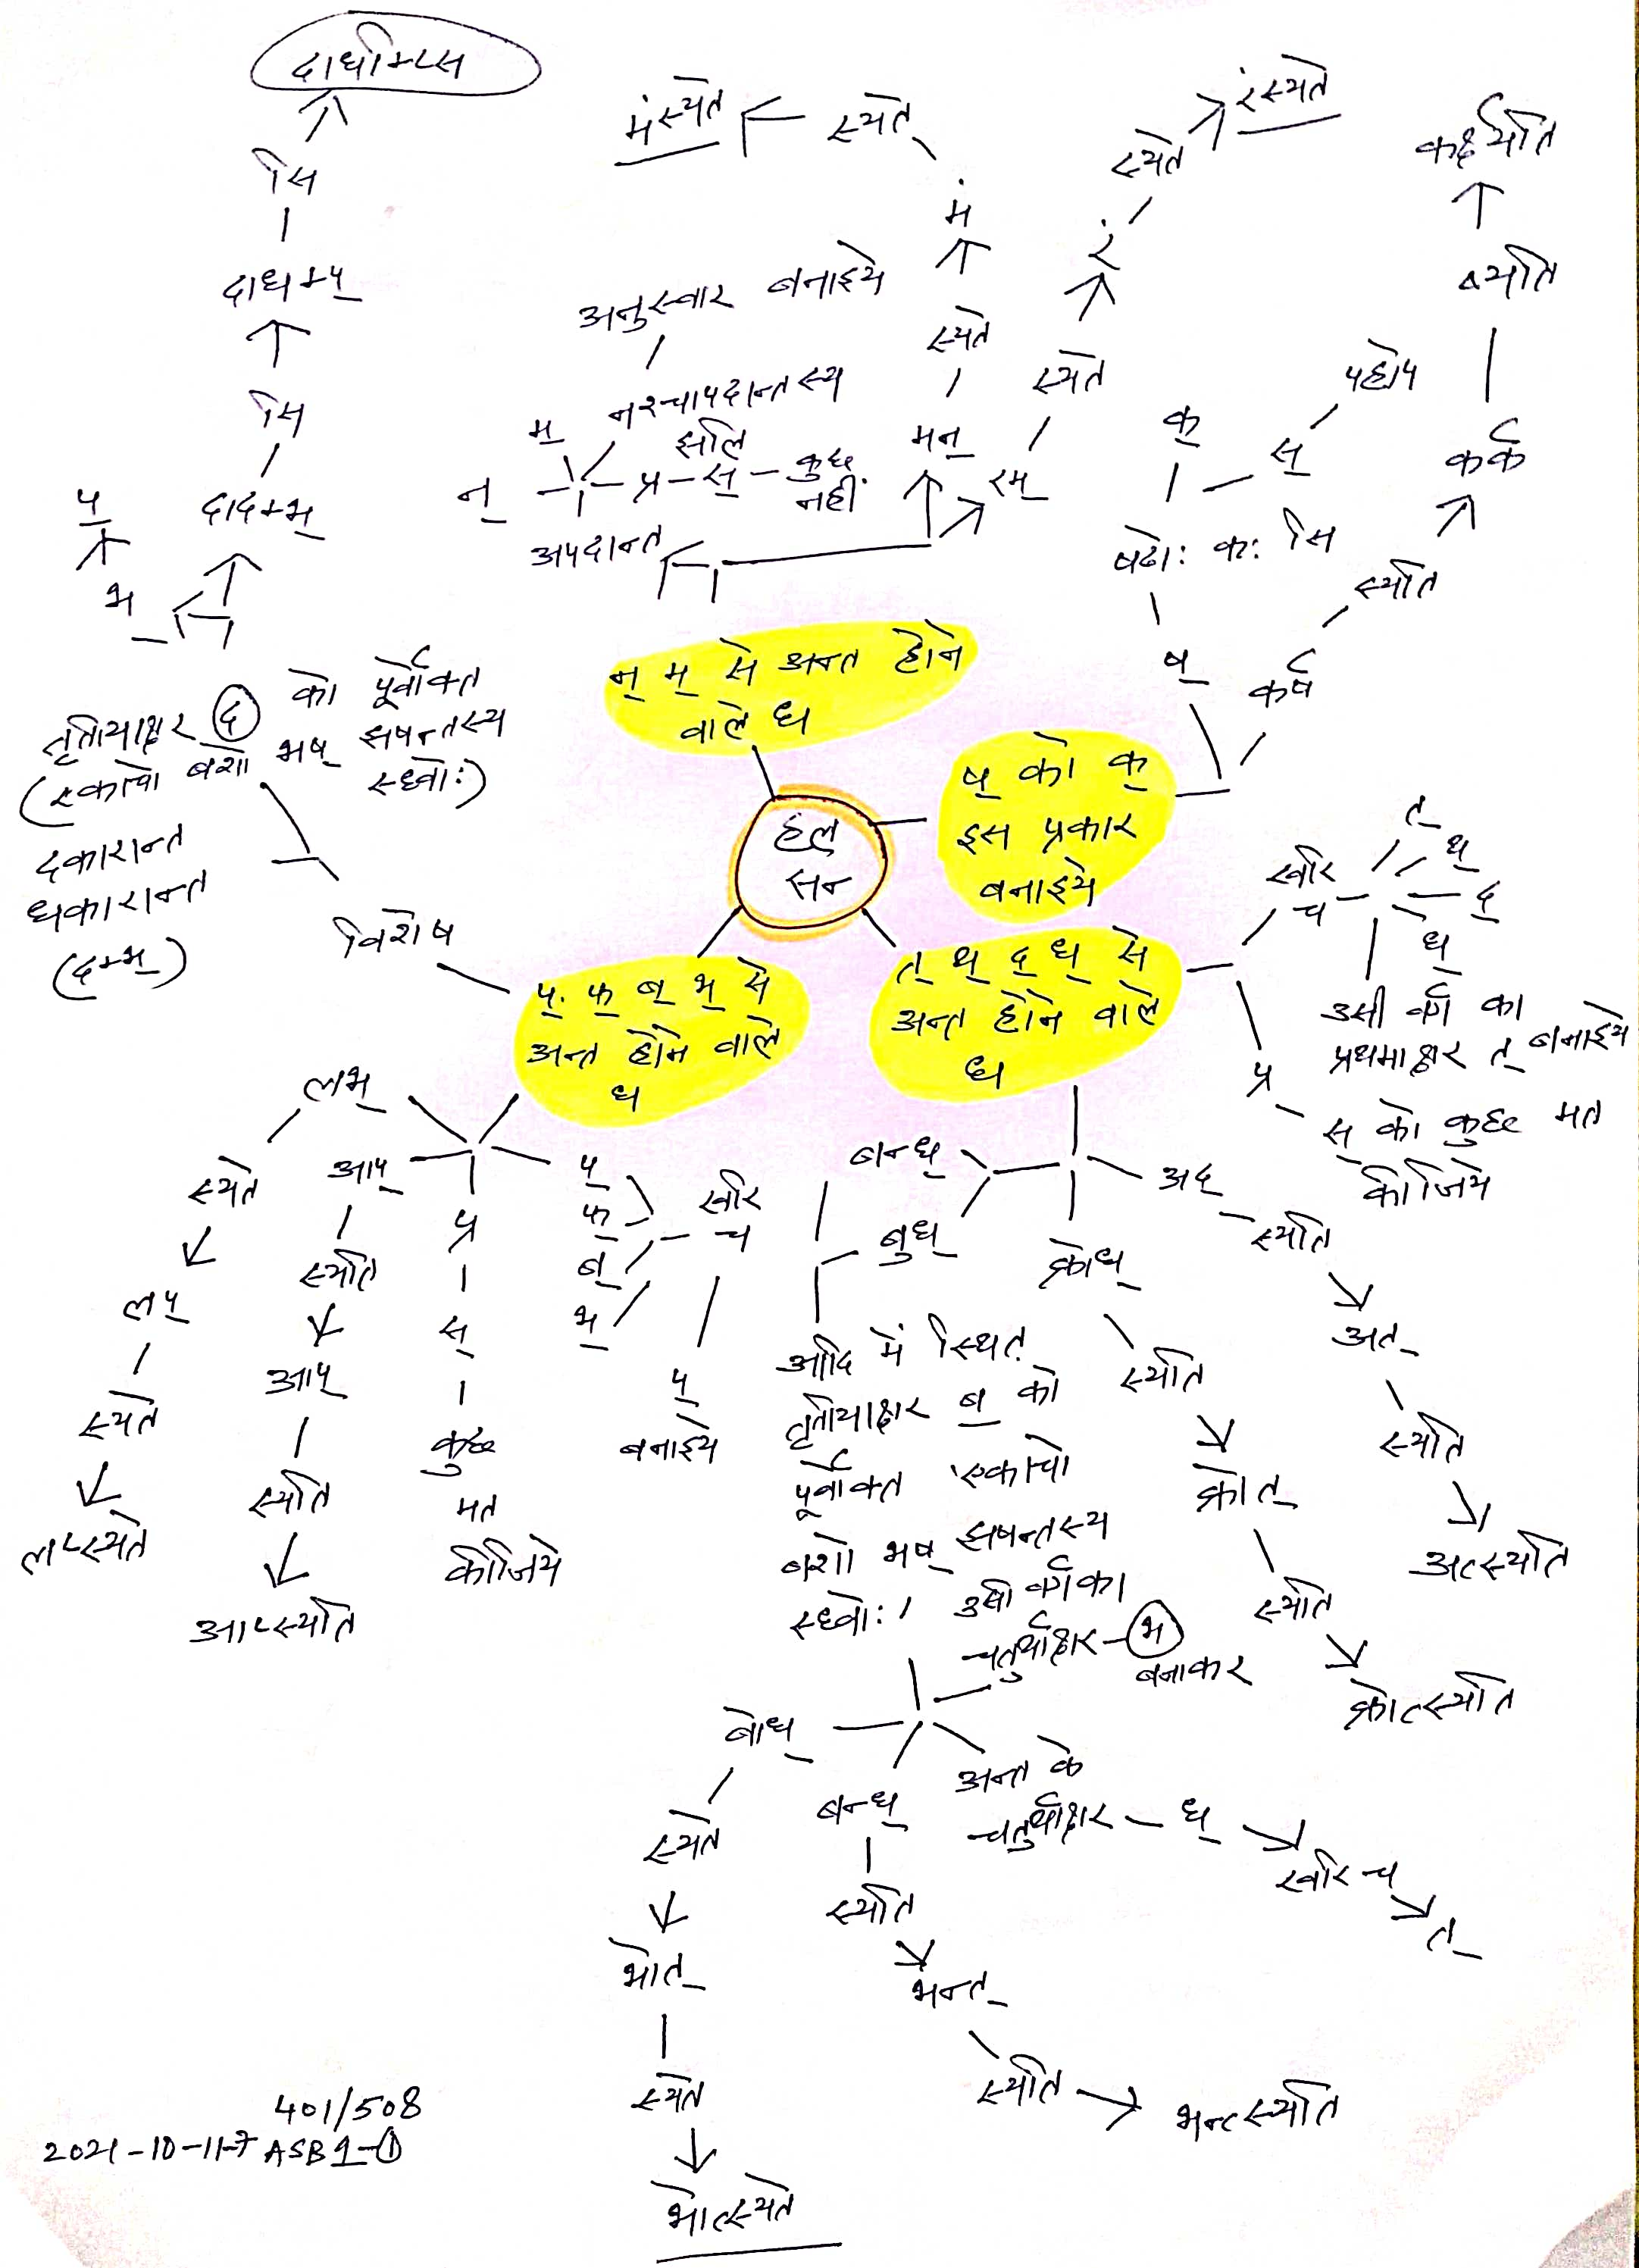 हल्
सन्
न् म् से अन्त होने
वाले धा
अपदान्त
न्
म्
नश्चापदान्तस्य
झलि
अनुस्वार बनाइये
प्र - स् - कुछ
नहीं
मन्
स्यते
मं
स्यते
मंस्यते
रम्
स्यते
रं
स्यते
रंस्यते
ष् को क्
इस प्रकार
बनाइये
ष्
षढोः कः सि
क्
स्
कर्ष
स्यति
कर्क
ष्यति
कर्क्ष्यति
त् थ् द् ध् से
अन्त होने वाले
धा
खरि
च
त्
थ्
द्
ध्
उसी वर्ग का
प्रथमाक्षर त् बनाइये
प्र
स् को कुछ मत
कीजिये
अद्
स्यति
अत्
स्यति
अत्स्यति
क्रोध्
स्यति
क्रोत्
स्यति
क्रोत्स्यति
बन्ध्
बुध्
आदि में स्थित
तृतीयाक्षर ब् को
पूर्वोक्त एकाचो
बशो भष् झषन्तस्य
स्ध्वोः।
उसी वर्ग का
चतुर्थाक्षर - भ
बनाकर
अन्त के
चतुर्थाक्षर - ध्
खरि च
त्
बन्ध्
स्यति
भन्त्
स्यति
भन्त्स्यति
बोध्
स्यते
भोत्
स्यते
भोत्स्यते
प् फ् ब् भ् से
अन्त होने वाले
धा
प्
फ्
ब्
भ्
खरि
च
प्
बनाइये
प्र
स्
कुछ
मत
कीजिये
आप्
स्यति
आप्
स्यति
आप्स्यति
लभ्
स्यते
लप्
स्यते
लप्स्यते
विशेष
दकारान्त
धकारान्त
(दम्भ्)
तृतीयाक्षर द को पूर्वोक्त
(एकाचो बशो भष् झषन्तस्य
स्ध्वोः)
भ्
प्
दादम्भ्
सि
दाधम्प्
सि
दाधम्प्सि
401/508
2021-10-11-7 ASB 1-①